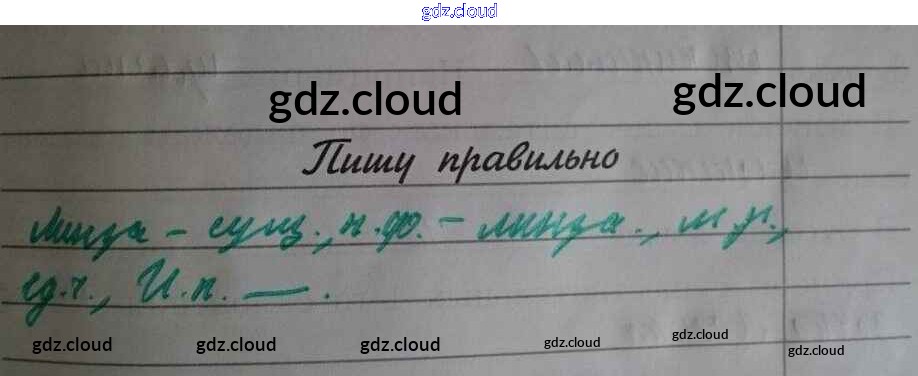 gdz.cloud
gdz.cloud gdz.cloud
Пишу правильно
– сущ., н.ф. – м.р.,
ед.ч., И.п. — .
gdz.cloud gdz.cloud gdz.cloud gdz.cloud gdz.cloud gdz.cloud